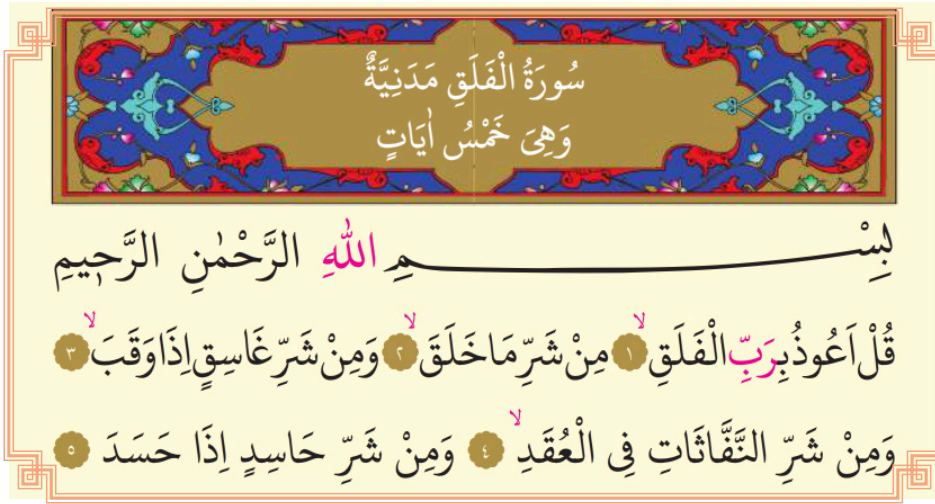 سُورَةُ الْفَلَقِ مَدَنِيَّةٌ
وَهِىَ خَمْسُ اٰيَاتٍ
بِسْمِ اللّٰهِ الرَّحْمٰنِ الرَّح۪يمِ
قُلْ اَعُوذُ بِرَبِّ الْفَلَقِۙ ﴿١﴾ مِنْ شَرِّ مَا خَلَقَۙ ﴿٢﴾ وَمِنْ شَرِّ غَاسِقٍ اِذَا وَقَبَۙ ﴿٣﴾
وَمِنْ شَرِّ النَّفَّاثَاتِ فِى الْعُقَدِۙ ﴿٤﴾ وَمِنْ شَرِّ حَاسِدٍ اِذَا حَسَدَ ﴿٥﴾